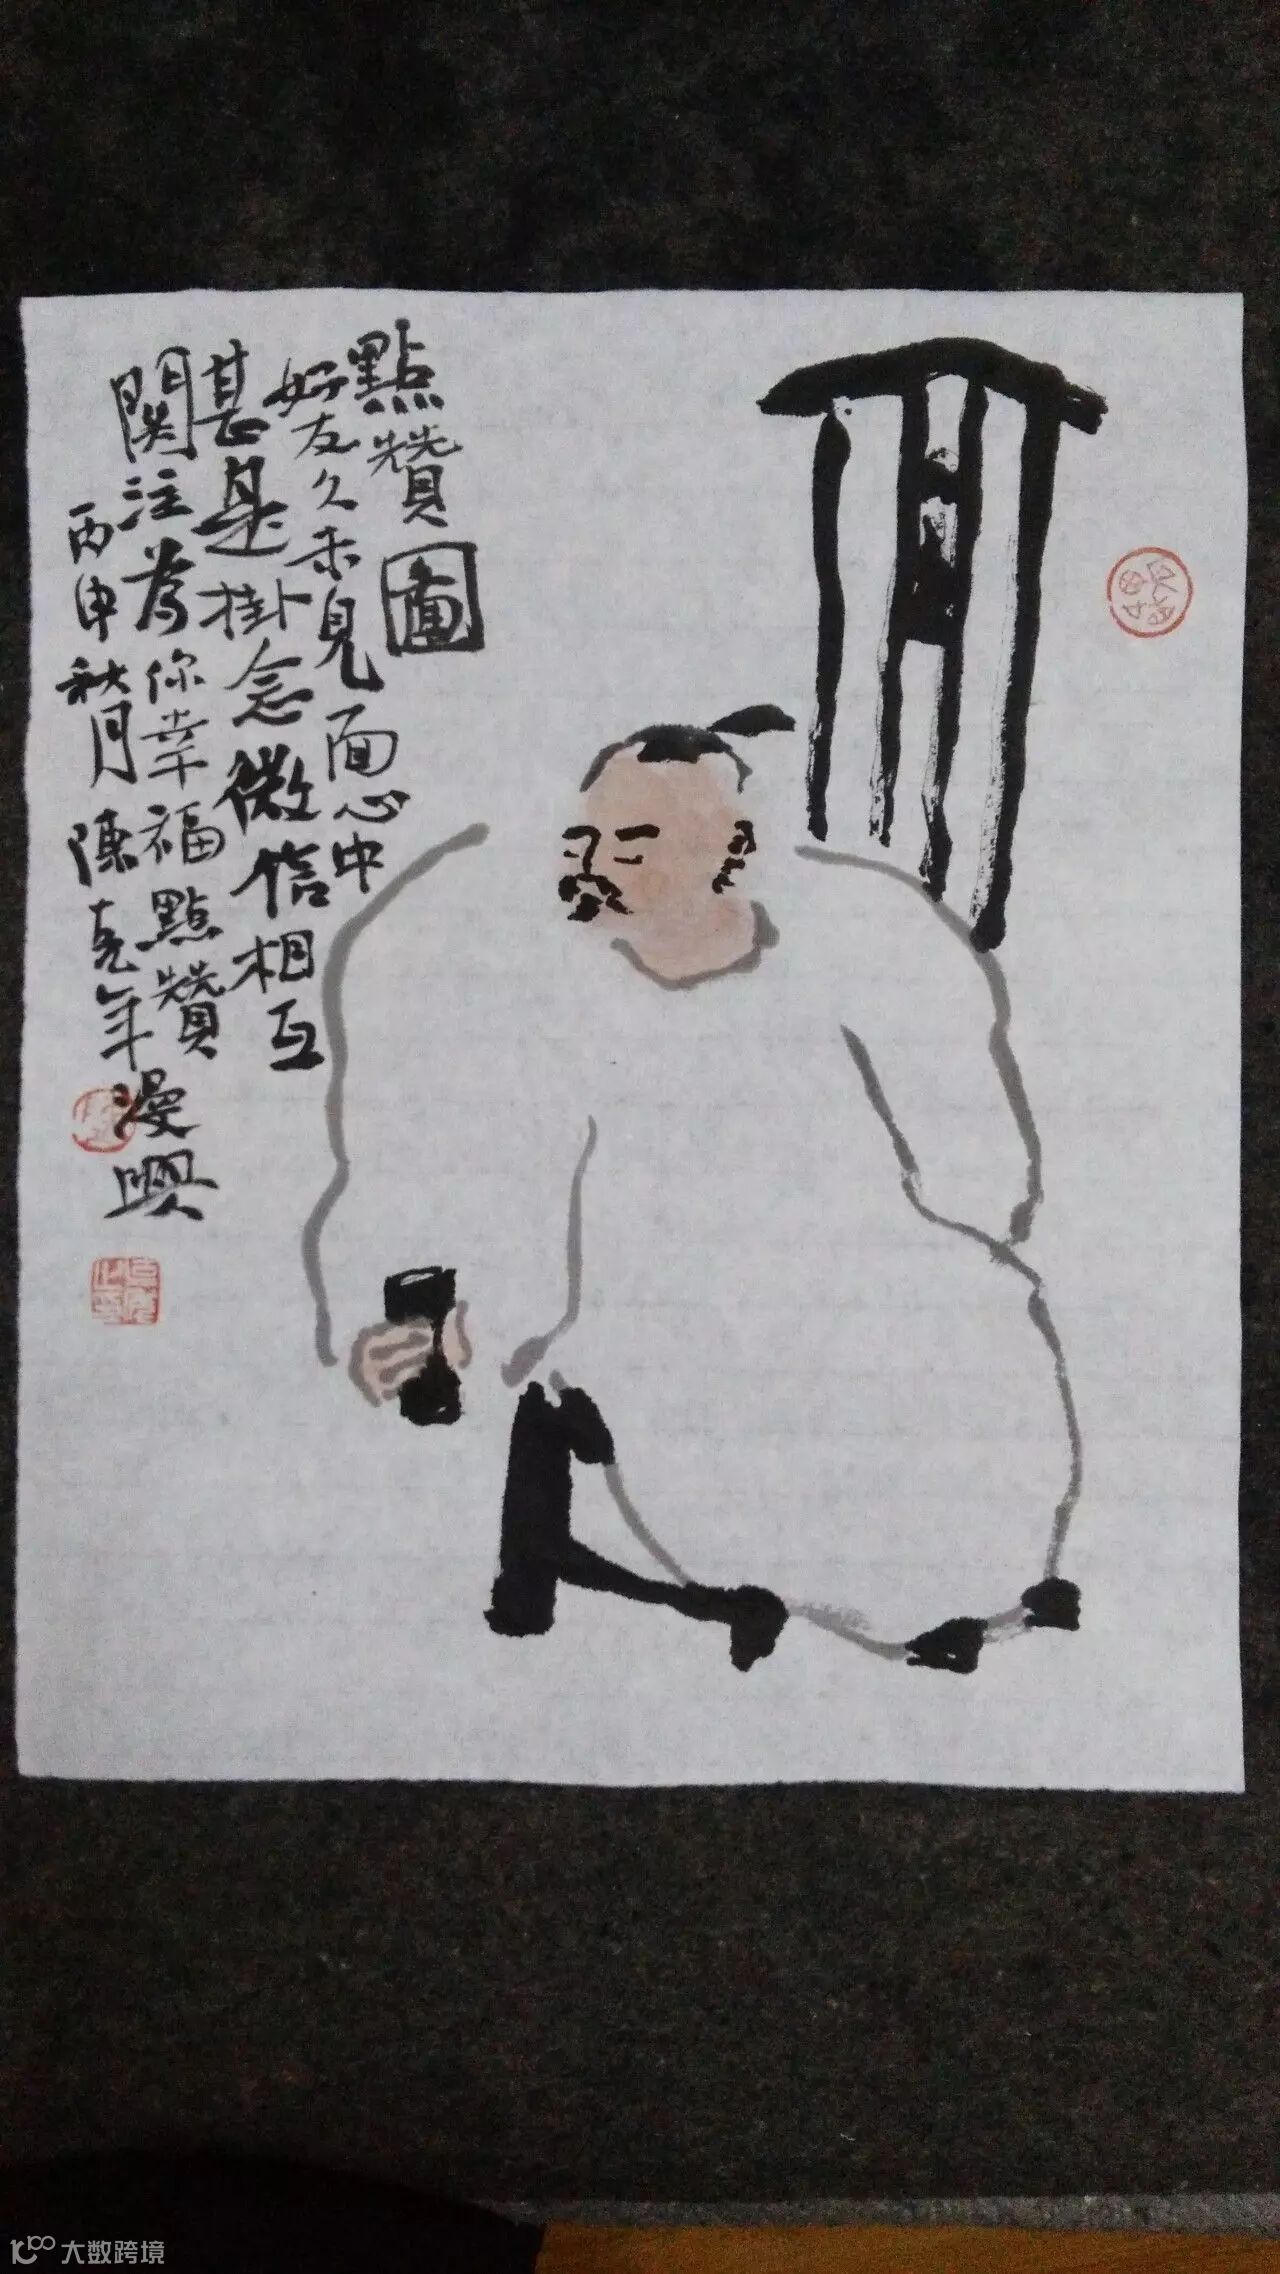 點贊圖
好友久未見面心中
甚是掛念微信相互
關注為你幸福點贊
丙申秋月陳克年漫興
大数跨境